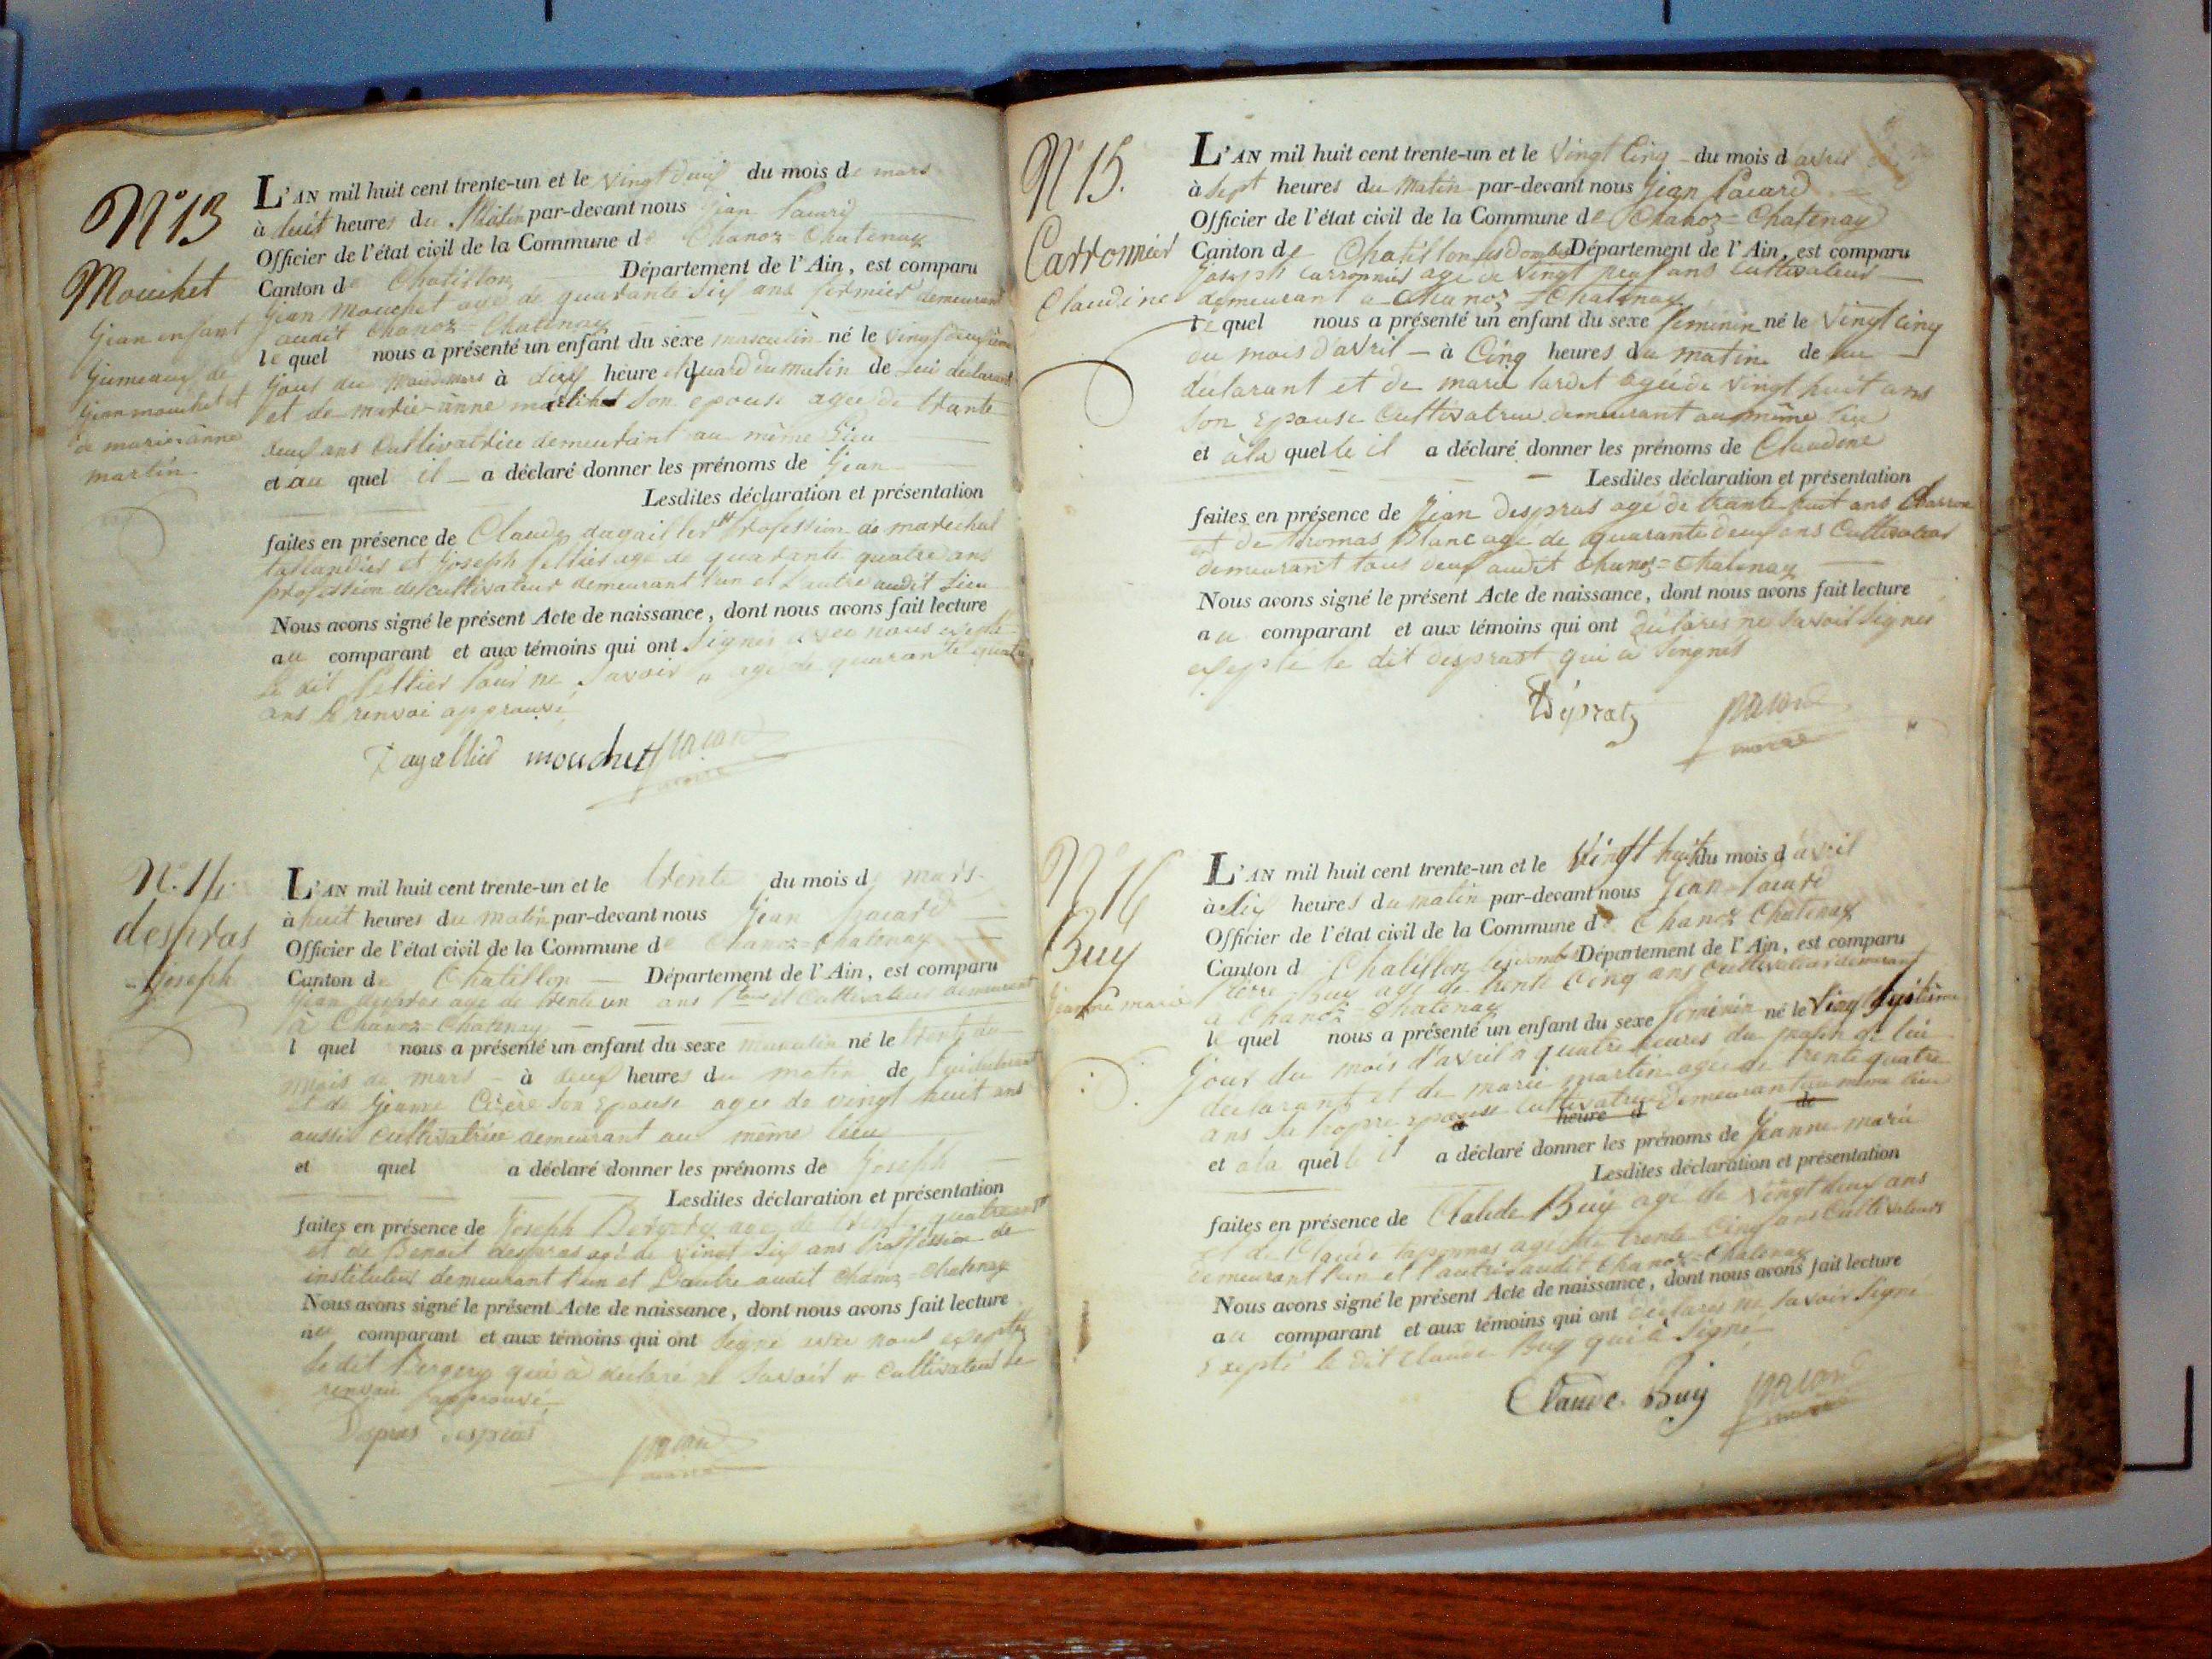 N° 13
Mouchet
Jean enfant
Jumeaux de
Jean mouchet et
de marie anne
martin
L'AN mil huit cent trente-un et le vingt deux du mois de mars
à huit heures du Matin par-devant nous Jean Pacard
Officier de l'état civil de la Commune de Chanoz-Chatenay
Canton de Chatillon Département de l'Ain, est comparu
Jean Mouchet agé de quarante six ans fermier demeurant
audit Chanoz-Chatenay
le quel nous a présenté un enfant du sexe masculin né le vingt deuxième
Jour du mois de mars à deux heure et quard du matin de Lui declarant
et de marie-anne martin son epouse agee de trante
deux ans Cultivatrice demeurant au même Lieu
et au quel il a déclaré donner les prénoms de Jean
Lesdites déclaration et présentation
faites en présence de Claude dagailler profession de marechal
taillandier et Joseph Pellier agé de quarante quatre ans
profession de Cultivateur demeurant l'un et L'autre audit Lieu
Nous avons signé le présent Acte de naissance, dont nous avons fait lecture
au comparant et aux témoins qui ont signés avec nous excepté
Le dit Pellier pour ne savoir " agé de quarante quatre
ans Le renvoi approuvé
Dagallier mouchet pacard
maire
N° 14
despras
Joseph
L'AN mil huit cent trente-un et le trente du mois de mars
à huit heures du matin par-devant nous Jean Pacard
Officier de l'état civil de la Commune de Chanoz-Chatenay
Canton de Chatillon Département de l'Ain, est comparu
Jean despras agé de trente un ans Cultivateur demeurant
à Chanoz-Chatenay
l quel nous a présenté un enfant du sexe masculin né le trente du
mois de mars à deux heures du matin de Lui declarant
et de Jeanne son Epouse agee de vingt huit ans
aussi Cultivatrice demeurant au même lieu
et quel a déclaré donner les prénoms de Joseph
Lesdites déclaration et présentation
faites en présence de Joseph Bergery agé de trente quatre ans
et de Benoit despras agé de vingt six ans Proffession de
instituteur demeurant l'un et L'autre audit Chanoz-Chatenay
Nous avons signé le présent Acte de naissance, dont nous avons fait lecture
au comparant et aux témoins qui ont signé avec nous excepté
le dit Bergery qui à declaré ne savoir " Cultivateur Le
renvoi approuvé
Despras despras pacard
maire
N° 15.
Carronnier
Claudine
L'AN mil huit cent trente-un et le vingt Cinq du mois d'avril
à sept heures du Matin par-devant nous Jean Pacard
Officier de l'état civil de la Commune de Chanoz-Chatenay
Canton de Chatillon les dombes Département de l'Ain, est comparu
Joseph Carronnier agé de vingt neuf ans Cultivateur
demeurant à Chanoz-Chatenay
le quel nous a présenté un enfant du sexe feminin né le vingt cinq
du mois d'avril à Cinq heures du matin de lui
déclarant et de marie tardet agée de vingt huit ans
son Epouse Cultivatrice demeurant au même lieu
et à la quelle il a déclaré donner les prénoms de Claudine
Lesdites déclaration et présentation
faites en présence de Jean Despras agé de trante huit ans Charron
et de Thomas Blanc agé de quarante deux ans Cultivateur
demeurant tous deux audit Chanoz-Chatenay
Nous avons signé le présent Acte de naissance, dont nous avons fait lecture
au comparant et aux témoins qui ont déclarés ne savoir signer
excepté le dit desprast qui a singné
Dépratz pacard
maire
N° 16
Buy
Jeanne marie
L'AN mil huit cent trente-un et le Vingt huit du mois d'avril
à six heures du matin par-devant nous Jean Pacard
Officier de l'état civil de la Commune de Chanoz Chatenay
Canton d Chatillon les dombes Département de l'Ain, est comparu
Pierre Buy agé de trente Cinq ans Cultivateur demeurant
à Chanoz-Chatenay
le quel nous a présenté un enfant du sexe feminin né le Vingt huitième
Jour du mois d'avril à quatre heures du matin de lui
déclarant et de marie martin agée de trente quatre
ans sa propre epouse Cultivatrice demeurant au même lieu
à heure d de
et a la quelle il a déclaré donner les prénoms de Jeanne marie
Lesdites déclaration et présentation
faites en présence de Claude Buy agé de vingt deux ans
et de Claude laponnas agé de trente Cinq ans Cultivateurs
demeurant l'un et l'autre audit Chanoz-Chatenay
Nous avons signé le présent Acte de naissance, dont nous avons fait lecture
au comparant et aux témoins qui ont déclarés ne savoir signé
Excepté le dit Claude Buy qui à signé
Claude Buy pacard
maire